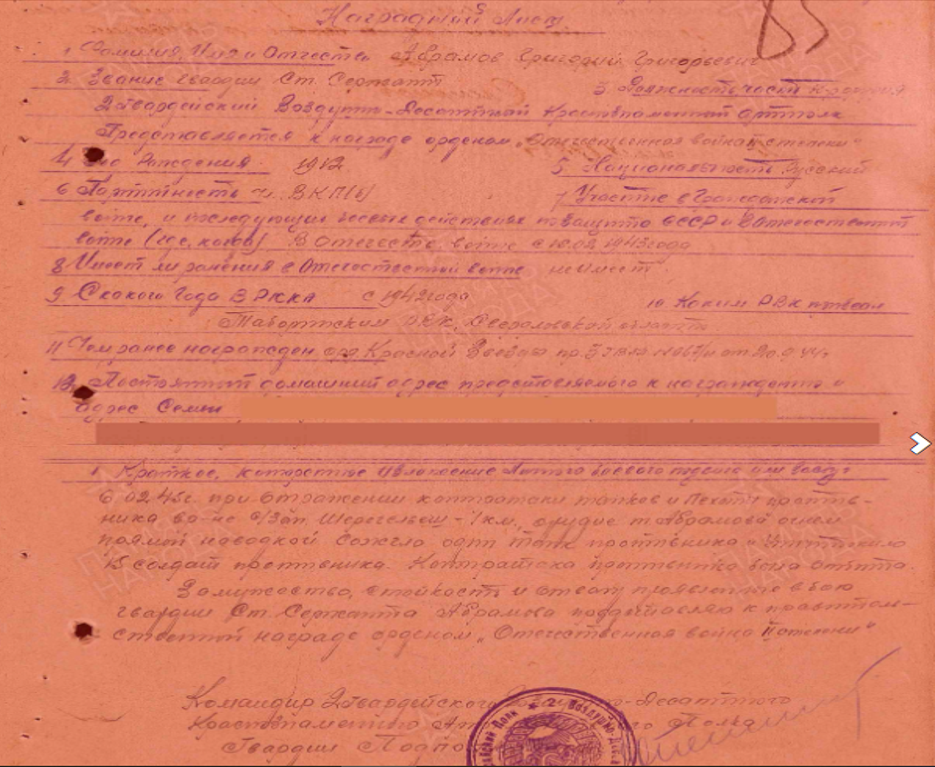 Наградной Лист
1 Фамилия, Имя и Отчество Абрамов Григорий Григорьевич
2 Звание гвардии Ст. Сержант 3 Должность часть
2 Гвардейский Воздушно-Десантной Краснознаменной артполк
Представляется к награде орденом „Отечественная война степени"
4 Год Рождения 1912 5 Национальность Русский
6 Партийность ВКП(б) 7 Участие в Гражданской
войне, и последующих боевых действиях по защите СССР и Отечественной
войне (где, когда) В Отечеств. войне с 1945 года
8 Имеет ли ранения в Отечественной войне не имеет
9 С какого Года в РККА с 1942 года 10 Каким РВК призван
Таборинским РВК, Свердловской области
11 Чем ранее награжден орд. Красной Звезды пр.
12 Постоянный домашний адрес представляемого к награждению и
адрес Семьи
1. Краткое, конкретное изложение личного боевого подвига или заслуг
02.45г. при отражении контратаки танков и пехоты против-
ника Шерегельеш - 1 км, орудие т Абрамова огнем
прямой наводкой сожгло один танк противника и уничтожило
15 солдат противника. Контратака противника была отбита.
За мужество, стойкость и отвагу проявленные в бою
гвардии Ст. Сержанта Абрамова к правитель-
ственной награде орденом „Отечественная война II степени"
Командир 2 Гвардейского -Десантного
Краснознаменного Полка
Гвардии